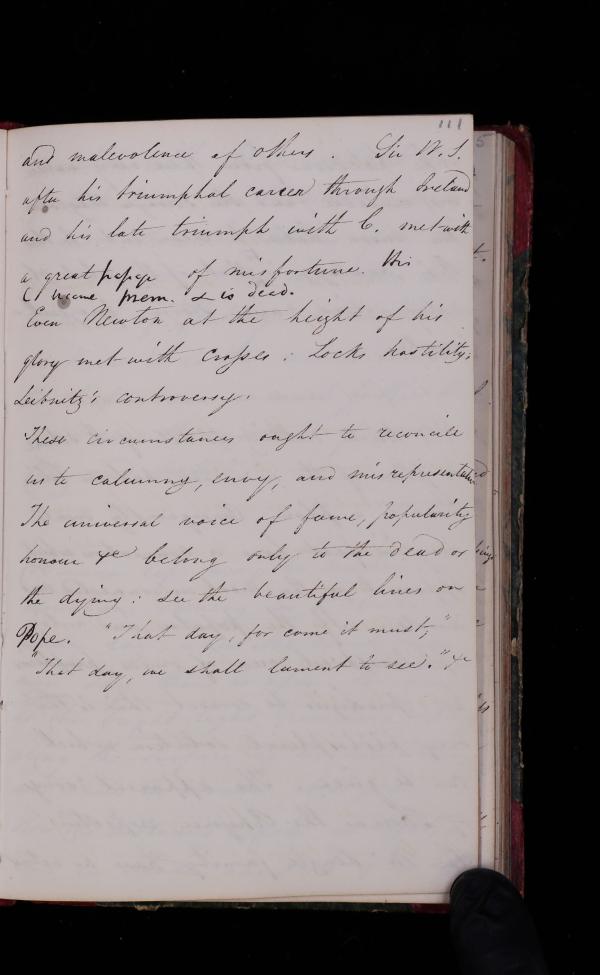 111
and malevolence of others. Sir W. S.
after his triumphal career through Ireland
and his late triumph with C. met with
a great of misfortune. His
mem. & is dead.
Even Newton at the height of his
glory met with crosses: Locks hostility;
Leibnitz's controversy.
These circumstances ought to reconcile
us to calumny, envy, and misrepresentation.
The universal voice of fame, popularity
honour &c belong only to the dead or
the dying: see the beautiful lines on
Pope. "That day, for come it must,"
"That day, we shall lament to see." &c